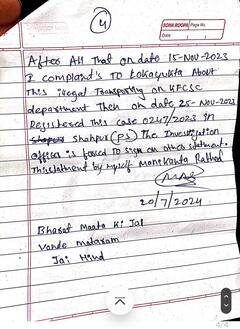 4
SONA ROOPA Page No.
Date
After All That on date 15-NOV-2023
I complaind's To Lokayukta About
This illegal Transporting on KFCSC
department Then on date, 25-NOV-2023
Registered This case 0247/2023 in
Shahpur (PS) The Investigation
officer is forced To sign on others statment.
This statment by myself Manikanta Rathod
20/7/2024
Bharat Maata Ki Jai
Vande mataram
Jai Hind
4/4